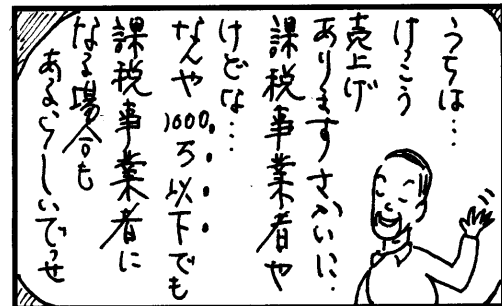 うちは…
けっこう
売上げ
ありますさかいに…
課税事業者や
けどな…
なんや1000万以下でも
課税事業者に
なる場合も
あるらしいでっせ